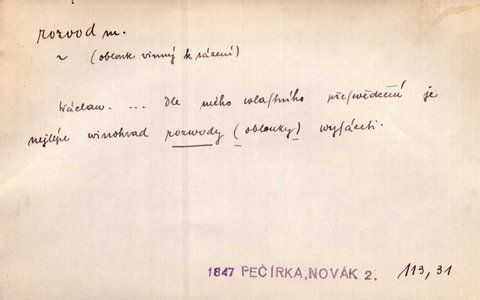 rozvod m.
~ (oblouk vinný k sázení)
Wáclaw. ... Dle mého wlastního přeswědčení je
nejlépe winohrad rozwody (oblouky) wysázeti.
1847 PEČÍRKA, NOVÁK 2. 113, 31